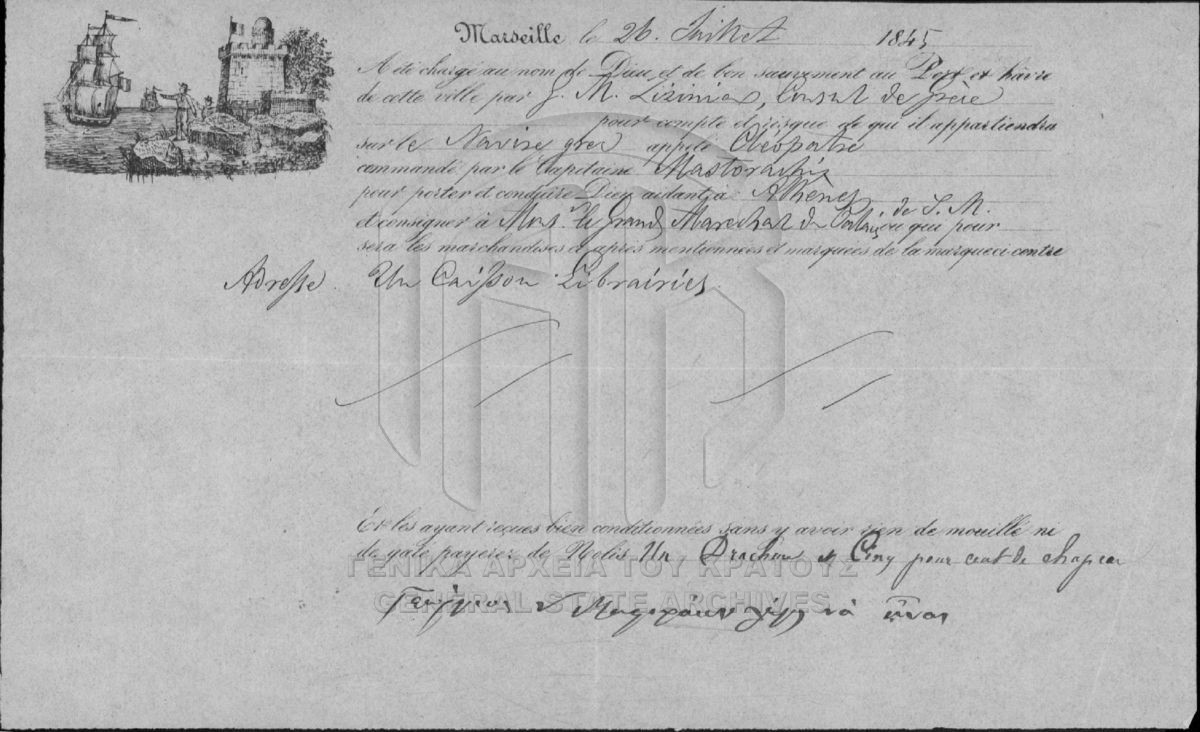 Marseille le 26. Juillet 1845
A été chargé au nom de Dieu et de bon sauvement au Port et hâvre
de cette ville par J. M. Zizinia, Consul de Grèce
pour compte et risque de qui il appartiendra
sur le Navire grec appelé Cléopatre
commandé par le Capitaine Mastorachi
pour porter et conduire Dieu aidant à Athènes
et consigner à Mons.r le Grand Marechal du Palais de S. M. ou qui pour
sera les marchandises ci après mentionnées et marquées de la marque ci contre
Adresse Un Caisson Librairies.
Et les ayant reçues bien conditionnées sans y avoir rien de mouillé ni
de gâté payerez de Nolis Un Drachme et Cinq pour cent de chapeau
ΓΕΝΙΚΑ ΑΡΧΕΙΑ ΤΟΥ ΚΡΑΤΟΥΣ
GENERAL STATE ARCHIVES
Γεώργιος νὰ